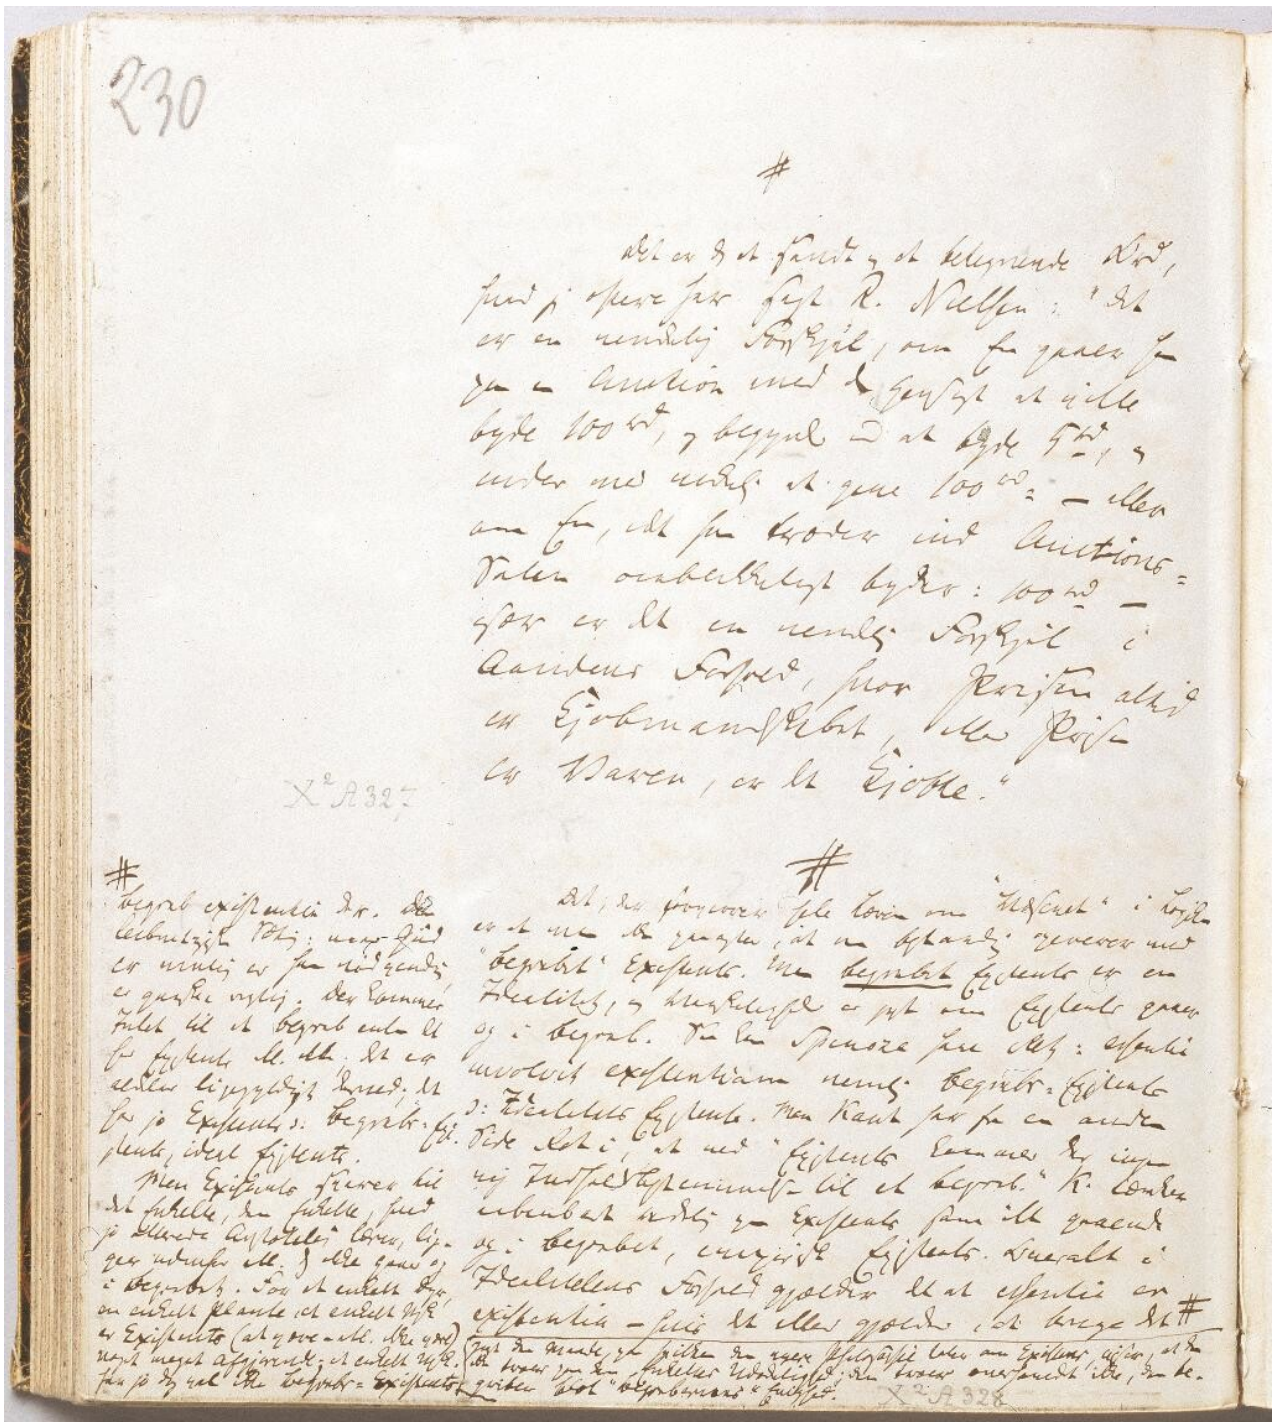 230
#
Det er dog et sandt og et betegnende Ord,
hvad jeg oftere har sagt R. Nielsen: "det
er en uendelig Forskjel, om En gaaer hen
paa en Auktion med den Hensigt at ville
byde 100 rd, og begynder med at byde 5 rd, og
ender med endelig at give 100 rd = — eller
om En, idet han træder ind Auctions=
Salen øieblikkeligt byder: 100 rd —
især er det en uendelig Forskjel i
Aandens Forhold, hvor Prisen altid
er Kjøbmandskabet, eller Prisen
er Varen, er det Kjøbte."
X² A 327
#
Det, der forvirrer hele Læren om "Væsenet" i Logiken
er at man ikke, at man bestandig opererer med
"Begrebet" Existents. Men Begrebet Existents er en
Idealitet, og Vanskeligheden er just om Existents gaaer
op i Begreb. Saa kan Spinoza have Ret: essentia
involvit existentiam nemlig Begrebs=Existents
ɔ: Idealitets Existents. Men Kant har fra en anden
Side Ret i, at ved "Existents kommer der ingen
ny Indholdsbestemmelse til et Begreb." K. tænker
aabenbart redelig paa Existents som ikke gaaende
op i Begrebet, empirisk Existents. Overalt i
Idealitetens Forhold gjælder det at essentia er
existentia – hvis det ellers gjælder, at bruge det #
#
Begreb existentia her. Den
leibnitziske Sætn: naar Gud
er mulig er han nødvendig,
er ganske rigtig. Der kommer
Intet til et Begreb enten det
har Existents ell. ikke. det er
aldeles ligegyldigt derved; det
har jo Existents ɔ: Begrebs=Exi-
stents, ideal Existents.
Men Existents svarer til
det Enkelte, den Enkelte, hvad
jo allerede Aristoteles lærer, lig-
ger udenfor ell. dog ikke gaaer op
i Begrebet. For et enkelt Dyr,
en enkelt Plante, et enkelt Msk.
er Existents (at være – ell. ikke være)
noget meget afgjørende; et enkelt Msk.
har jo dog vel ikke Begrebs=Existents.
just den Maade, paa hvilken den nyere Philosophie taler om Existens, viser, at den
ikke troer paa den Enkeltes Udødelighed; den troer overhovedet ikke, den be-
griber blot "Begrebernes" Evighed.
X² A 328